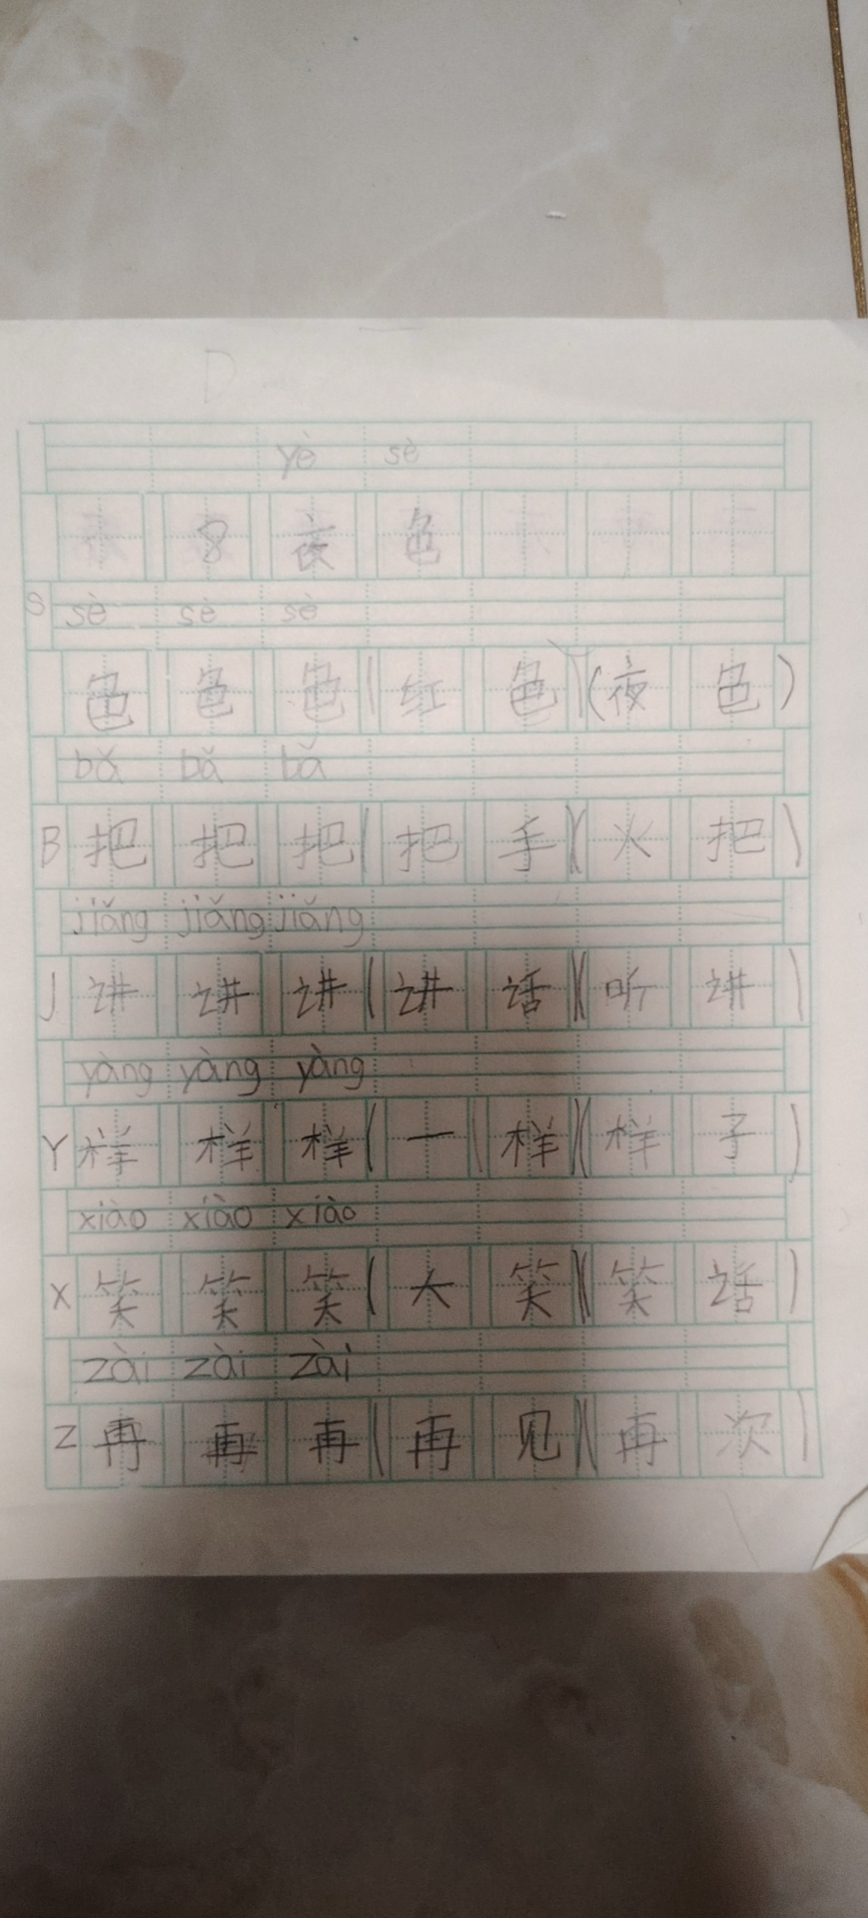 D
yè sè
8 夜 色
S sè sè sè
色 色 色 ( 红 色 ) ( 夜 色 )
bǎ bǎ bǎ
B 把 把 把 ( 把 手 ) ( 火 把 )
jiǎng jiǎng jiǎng
J 讲 讲 讲 ( 讲 话 ) ( 听 讲 )
yàng yàng yàng
Y 样 样 样 ( 一 样 ) ( 样 子 )
xiào xiào xiào
X 笑 笑 笑 ( 大 笑 ) ( 笑 话 )
zài zài zài
Z 再 再 再 ( 再 见 ) ( 再 次 )